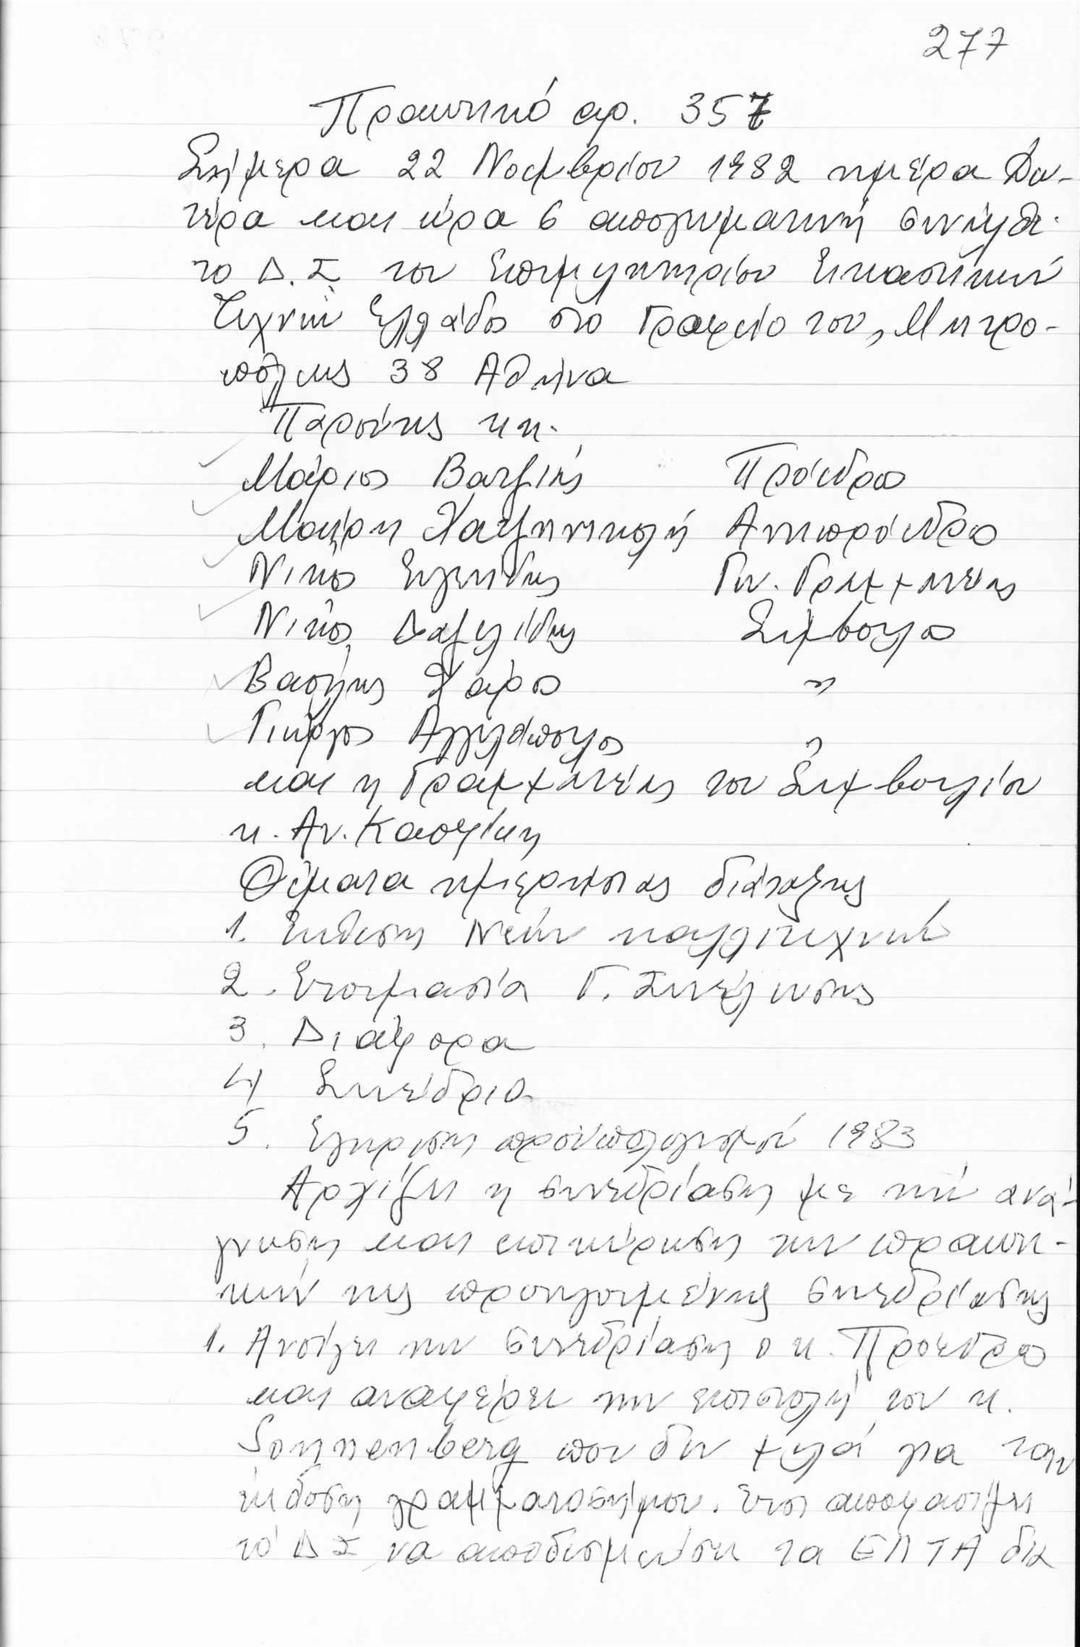 277
Πρακτικό αρ. 357
Σήμερα 22 Νοεμβρίου 1982 ημέρα Δευ-
τέρα και ώρα 6 απογευματινή συνήλθε
το Δ.Σ του Επιμελητηρίου Εικαστικών
Τεχνών Ελλάδος στο Γραφείο του, Μητρο-
πόλεως 38 Αθήνα
Παρόντες κκ.
Μάριος Βατζιάς Πρόεδρος
Μαίρη Χατζηνικολή Αντιπρόεδρος
Νίκος Ευγενίδης Γεν. Γραμματέας
Νίκος Δαμελίδης Σύμβουλος
Βασίλης Χάρος "
Γιώργος Αγγελόπουλος "
και η Γραμματέας του Συμβουλίου
κ. Αν. Κασφίκη
Θέματα ημερησίας διάταξης
1. Έκθεση Νέων καλλιτεχνών
2. Ετοιμασία Γ. Συνέλευσης
3. Διάφορα
4 Συνέδριο
5. Έγκριση προϋπολογισμού 1983
Αρχίζει η συνεδρίαση με την ανά-
γνωση και επικύρωση των πρακτι-
κών της προηγούμενης συνεδρίασης
1. Ανοίγει την συνεδρίαση ο κ. Πρόεδρος
και αναφέρει την επιστολή του κ.
Sonnenberg που δεν μιλά για την
έκδοση γραμματοσήμου. Έτσι αποφασίζει
το Δ Σ να αποδεσμεύσει τα ΕΛΤΑ δια